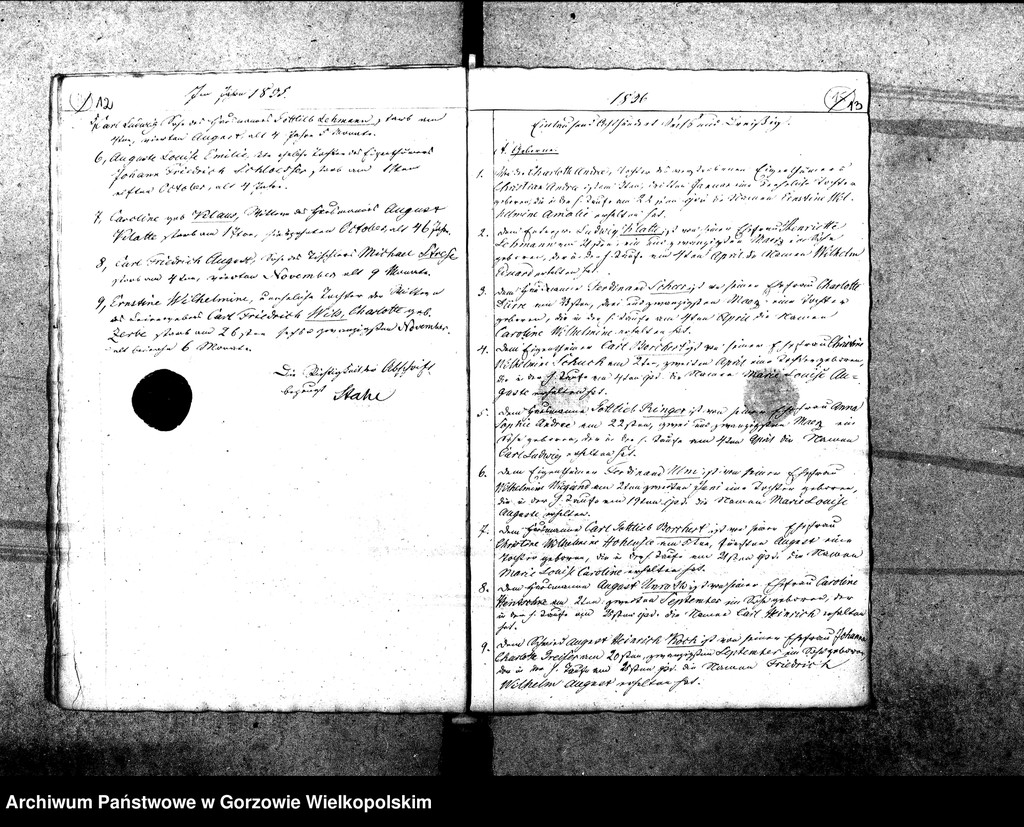 12
Im Jahre 1835.
Karl Ludwig, Sohn des Hausmanns Gottlieb Lehmann, starb am
4ten, vierten August, alt 4 Jahre 5 Monate.
6, Auguste Louise Emilie, eheliche Tochter des Eigenthümers
Johann Friedrich starb am 11ten
elften October, alt 4 Jahre.
7, Caroline geb. Klaus, Wittwe des Hausmanns August
Klatte starb am 17ten, siebzehnten October, alt 46 Jahr.
8, Carl Friedrich August, Sohn des Tischlers Michael Strese
starb am 4ten, vierten November alt 9 Monate.
9, Ernstine Wilhelmine, uneheliche Tochter der Wittwe
des Carl Friedrich Wils, Charlotte geb.
Zerbe starb am 26sten, sechs und zwanzigsten November,
alt beinahe 6 Monate.
Die Richtigkeit der Abschrift
bezeugt Stahr
1836
13
Eintausend Achthundert Sechs und Dreißig.
A. Geborne.
1. Charlotte Andree, Tochter des verstorbenen Eigenthümers
Christian Andree ist am 3ten, dritten Januar eine Tochter
geboren, die in der h. Taufe am die Namen Ernstine Wil-
helmine Amalie erhalten hat.
2. Dem Ludwig Klatte ist von seiner Ehefrau Henriette
Lehmann am März ein Sohn
geboren, der in der h. Taufe am 4ten April die Namen Wilhelm
Eduard erhalten hat.
3. Dem Hausmann Ferdinand ist von seiner Ehefrau Charlotte
am 23sten, drei und zwanzigsten März eine Tochter
geboren, die in der h. Taufe am April die Namen
Caroline Wilhelmine erhalten hat.
4. Dem Eigenthümer Carl Borchert ist von seiner Ehefrau Christine
Wilhelmine Schuck am 2ten, zweiten April eine Tochter geboren,
die in der h. Taufe am die Namen Marie Louise Au-
guste erhalten hat.
5. Dem Hausmann Gottlieb Ringer ist von seiner Ehefrau Anna
Sophie Andree am 22sten, zwei und zwanzigsten März ein
Sohn geboren, der in der h. Taufe am 4ten April die Namen
Carl Ludwig erhalten hat.
6. Dem Eigenthümer Ferdinand Ulm ist von seiner Ehefrau
Wilhelmine am 2ten zweiten Juni eine Tochter geboren,
die in der h. Taufe am die Namen Marie Louise
Auguste erhalten.
7. Dem Hausmann Carl Gottlieb Borchert ist von seiner Ehefrau
Christine Wilhelmine Hohensee am 5ten, fünften August eine
Tochter geboren, die in der h. Taufe am die Namen
Marie Louise Caroline erhalten hat.
8. Dem Hausmann August ist von seiner Ehefrau Caroline
am 2ten zweiten September ein Sohn geboren, der
in der h. Taufe am die Namen Carl Heinrich erhalten
hat.
9. Dem Schmied August Heinrich Koch ist von seiner Ehefrau Johanne
Charlotte Greiser am 20sten, zwanzigsten September ein Sohn geboren,
der in der h. Taufe am die Namen Friedrich
Wilhelm August erhalten hat.
Archiwum Państwowe w Gorzowie Wielkopolskim